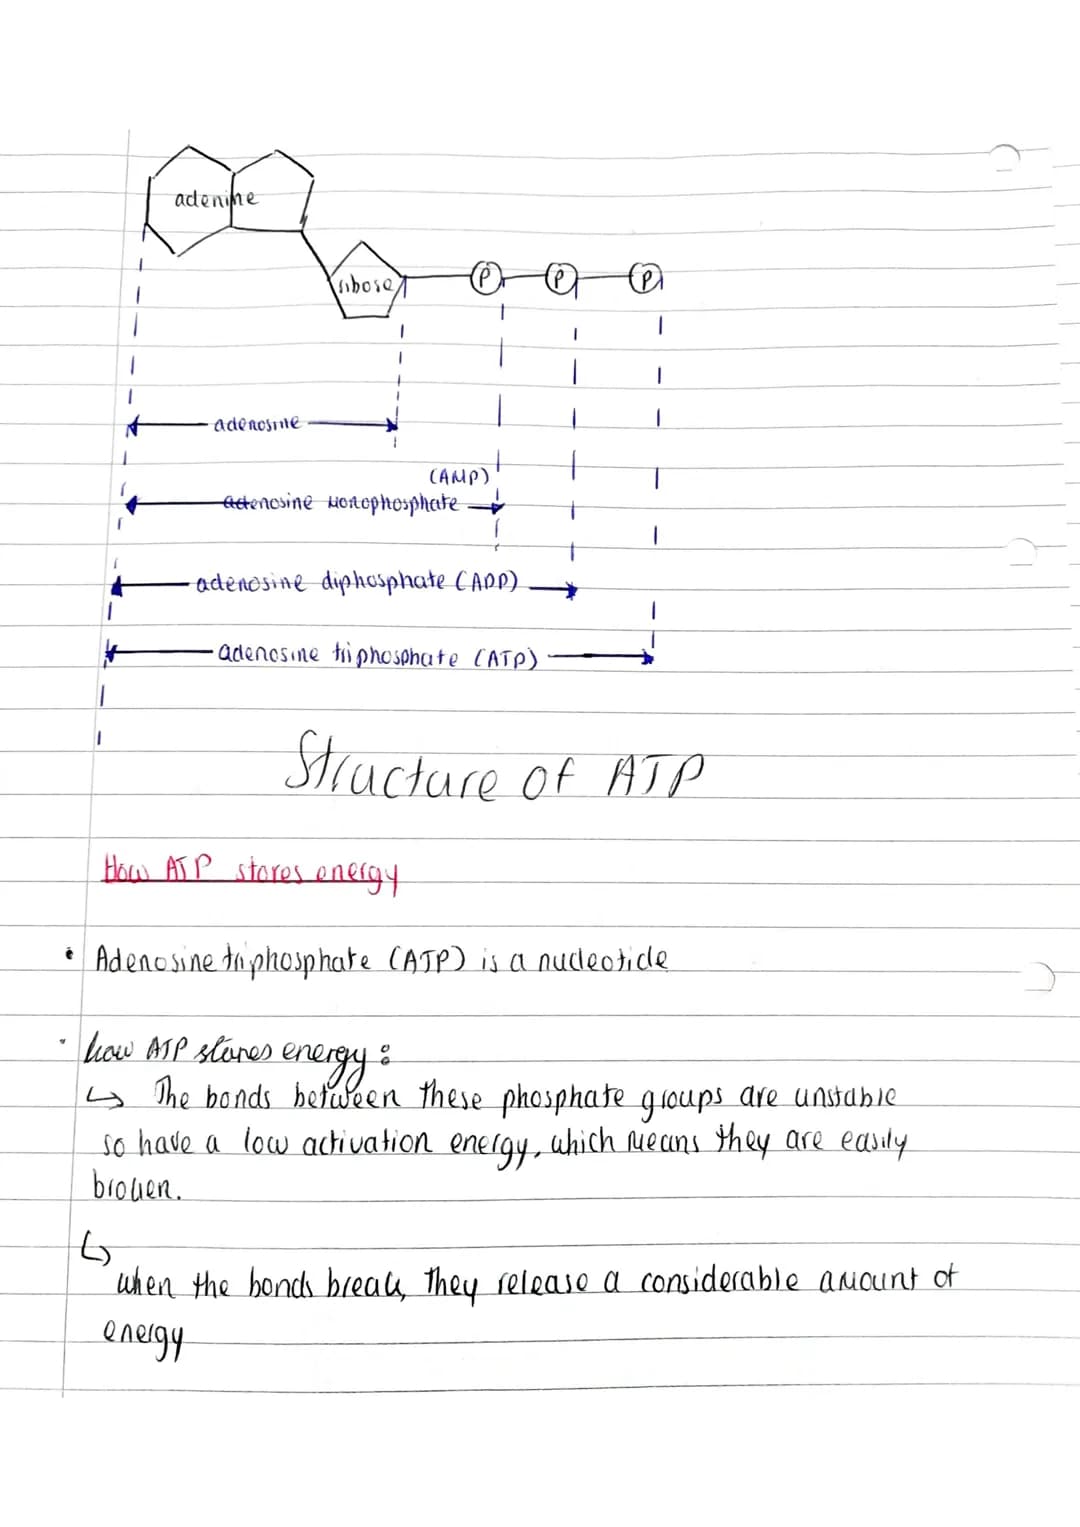 adenine
ribose
P P P
adenosine
(AMP)
adenosine Monophosphate
adenosine diphosphate (ADP)
adenosine triphosphate (ATP)
Structure of ATP
How ATP stores energy
• Adenosine triphosphate (ATP) is a nucleotide
• how ATP stores energy:
↳ The bonds between these phosphate groups are unstable
so have a low activation energy, which means they are easily
broken.
↳
when the bonds break, they release a considerable amount of
energy